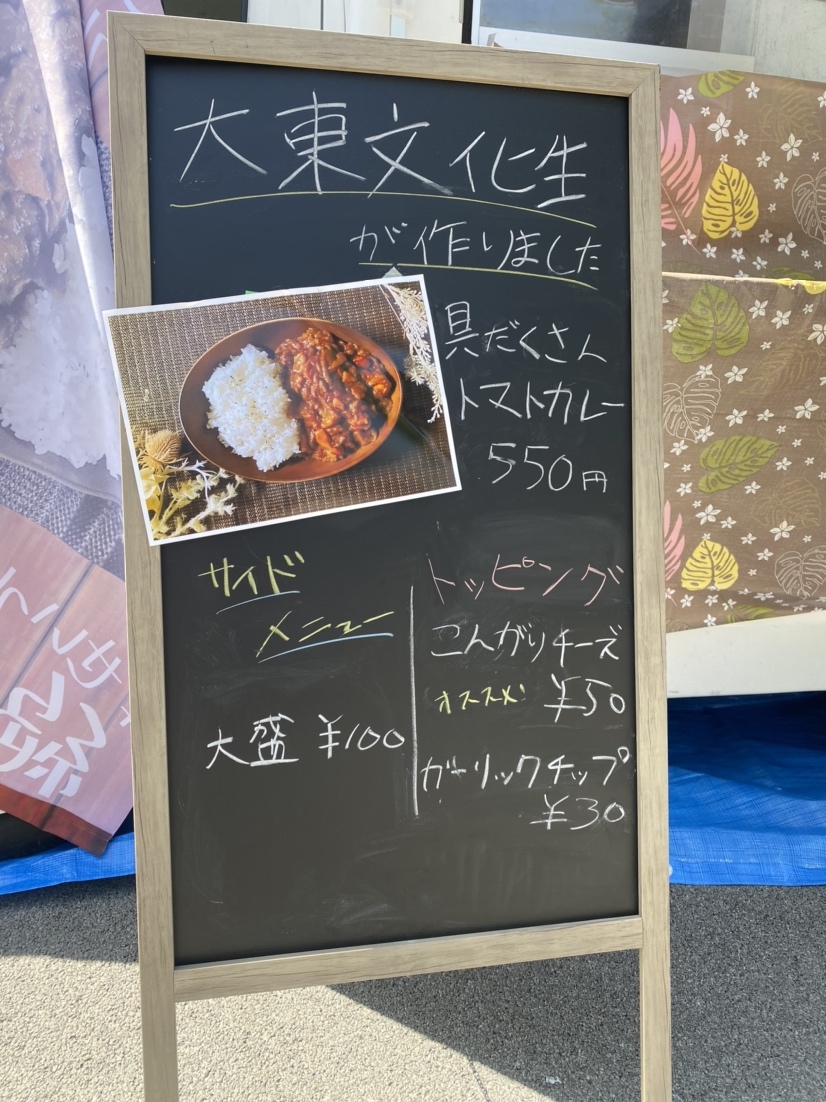 大東文化生
が作りました
具だくさん
トマトカレー
550円
サイド
メニュー
大盛 ¥100
トッピング
こんがりチーズ
オススメ! ¥50
ガーリックチップ
¥30